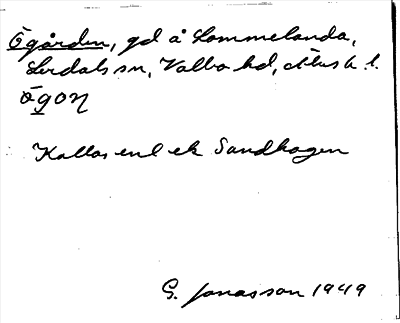 Ögården, gd å Lommelanda,
Lerdals sn, Valbo hd, Älvsb. l.
ögoη
Kallas enl ek Sandhagen
G. Jonasson 1949